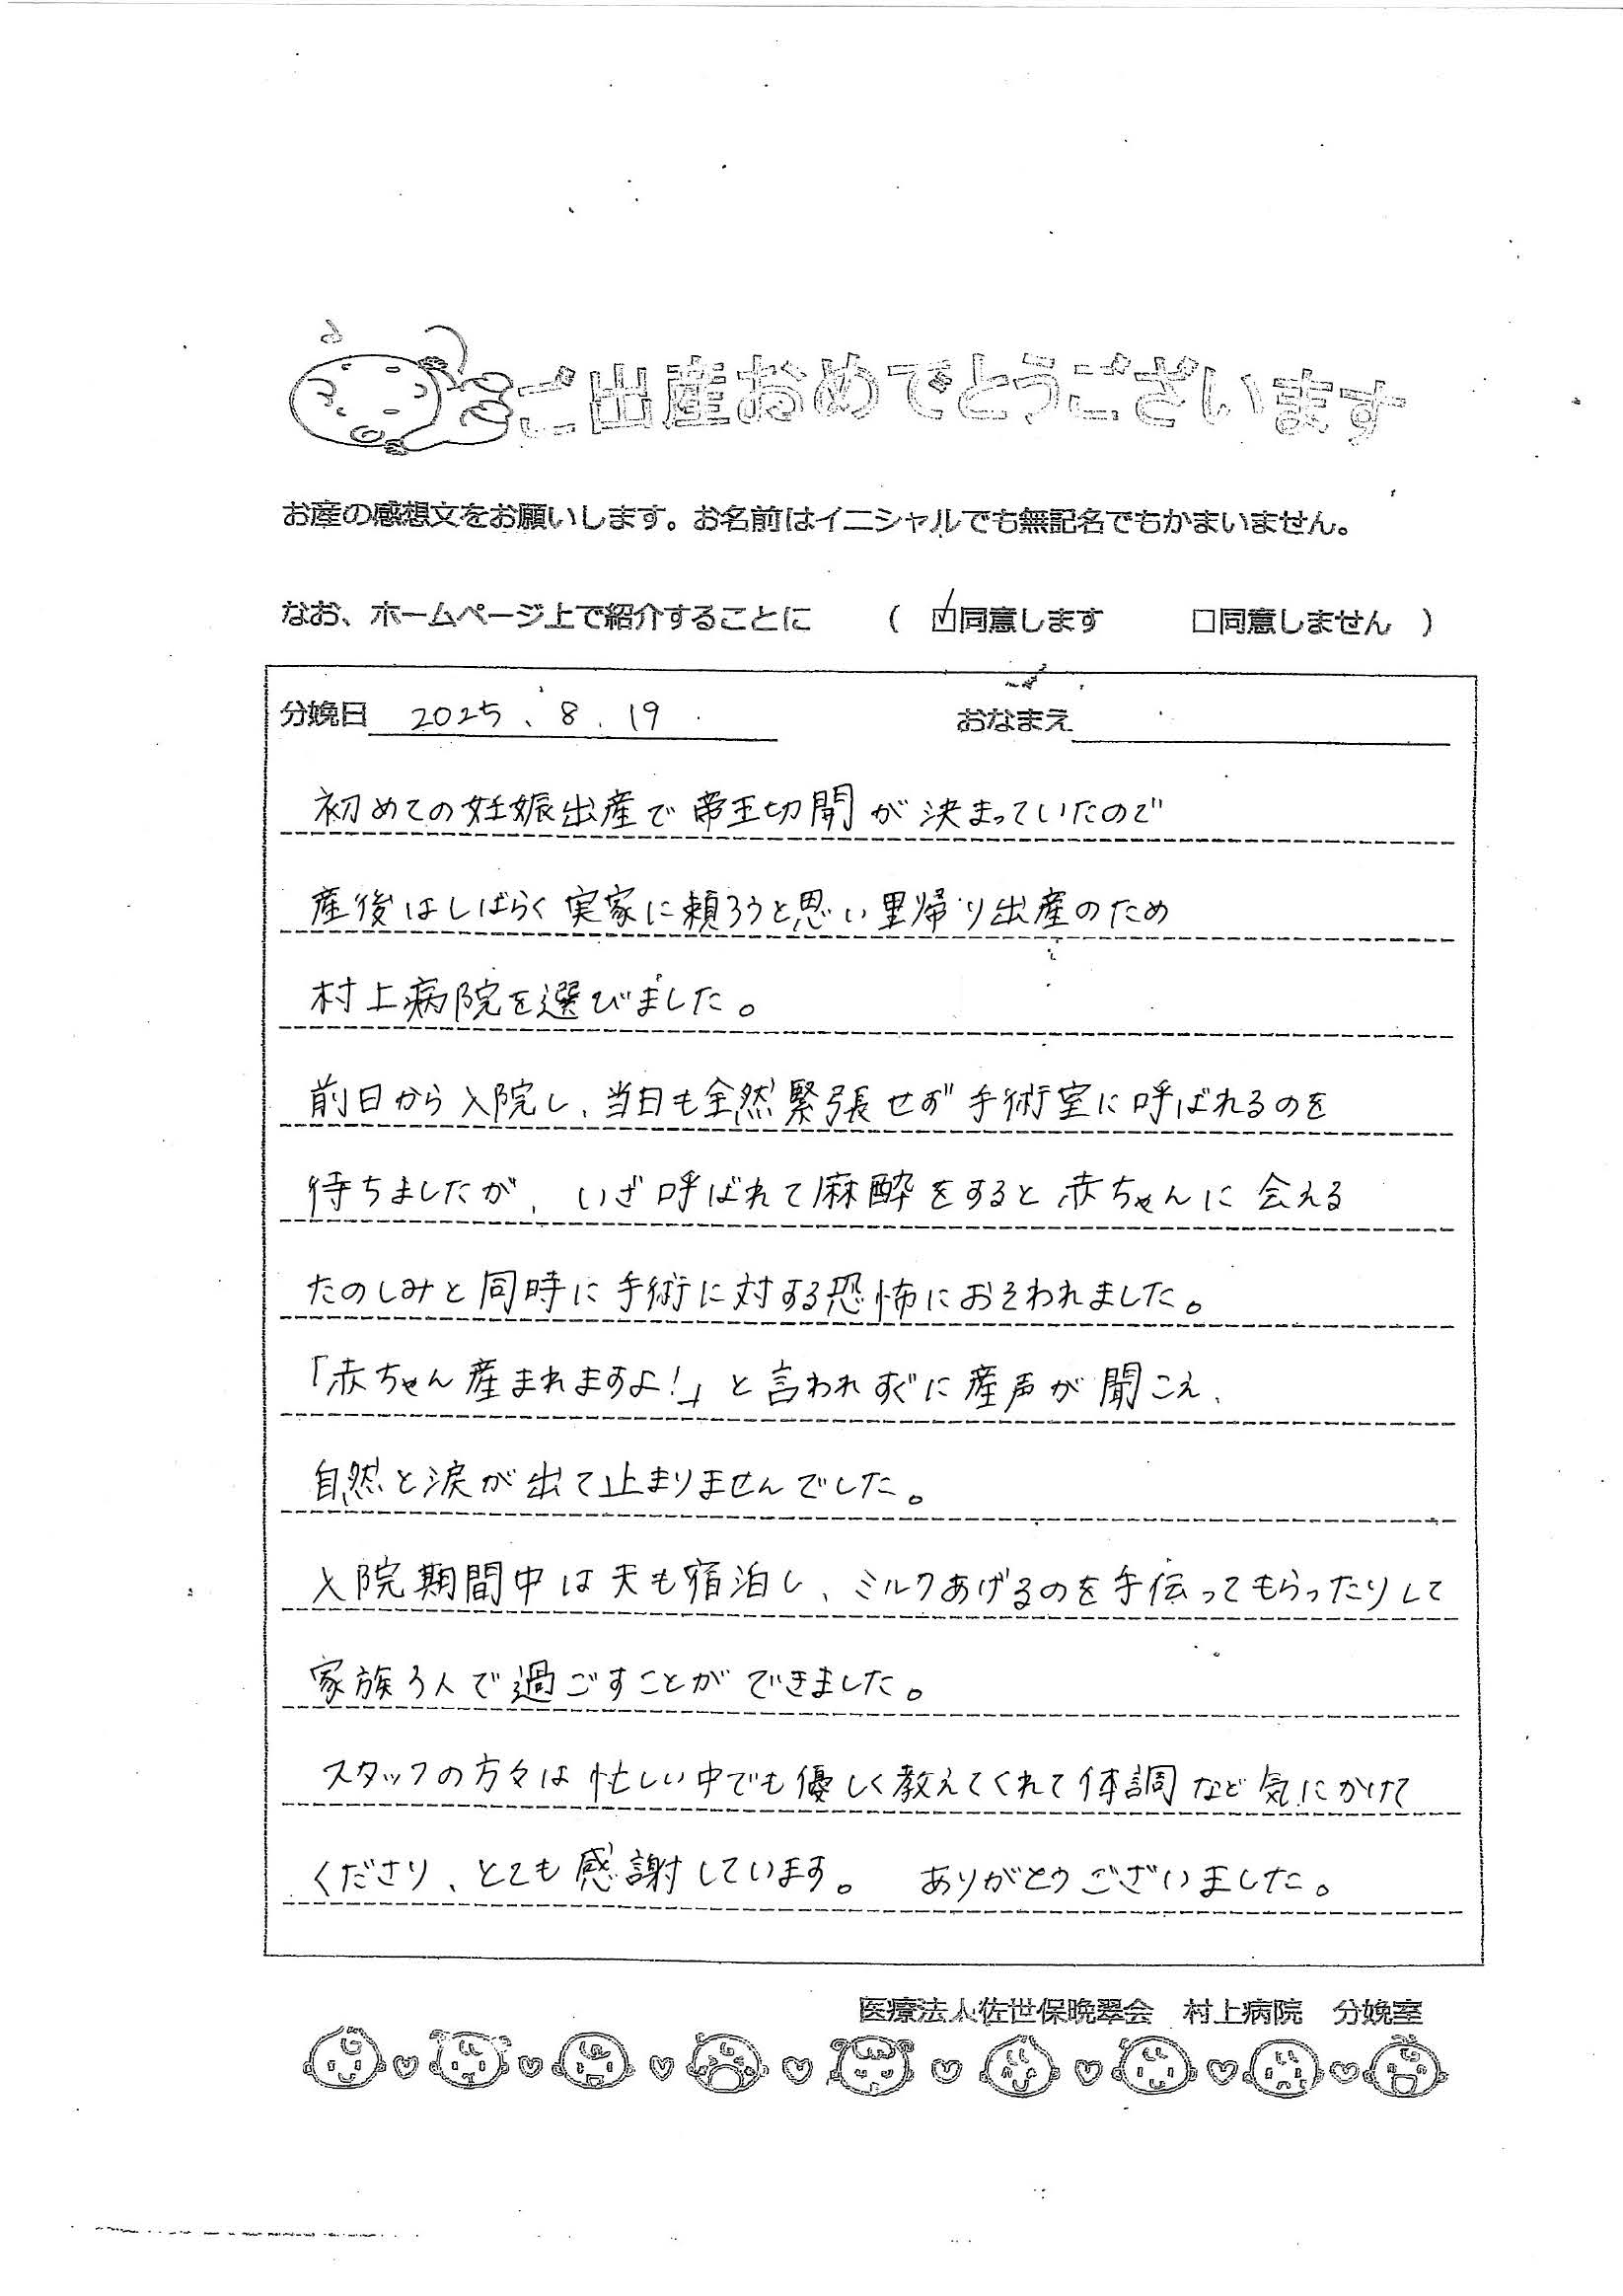 ご出産おめでとうございます
お産の感想文をお願いします。お名前はイニシャルでも無記名でもかまいません。
なお、ホームページ上で紹介することに （ ☑同意します □同意しません ）
分娩日 2025.8.19 おなまえ
初めての妊娠出産で帝王切開が決まっていたので
産後はしばらく実家に頼ろうと思い里帰り出産のため
村上病院を選びました。
前日から入院し、当日も全然緊張せず手術室に呼ばれるのを
待ちましたが、いざ呼ばれて麻酔をすると赤ちゃんに会える
たのしみと同時に手術に対する恐怖におそわれました。
「赤ちゃん産まれますよ！」と言われすぐに産声が聞こえ、
自然と涙が出て止まりませんでした。
入院期間中は夫も宿泊し、ミルクあげるのを手伝ってもらったりして
家族3人で過ごすことができました。
スタッフの方々は忙しい中でも優しく教えてくれて体調など気にかけて
くださり、とても感謝しています。 ありがとうございました。
医療法人佐世保晩翠会 村上病院 分娩室